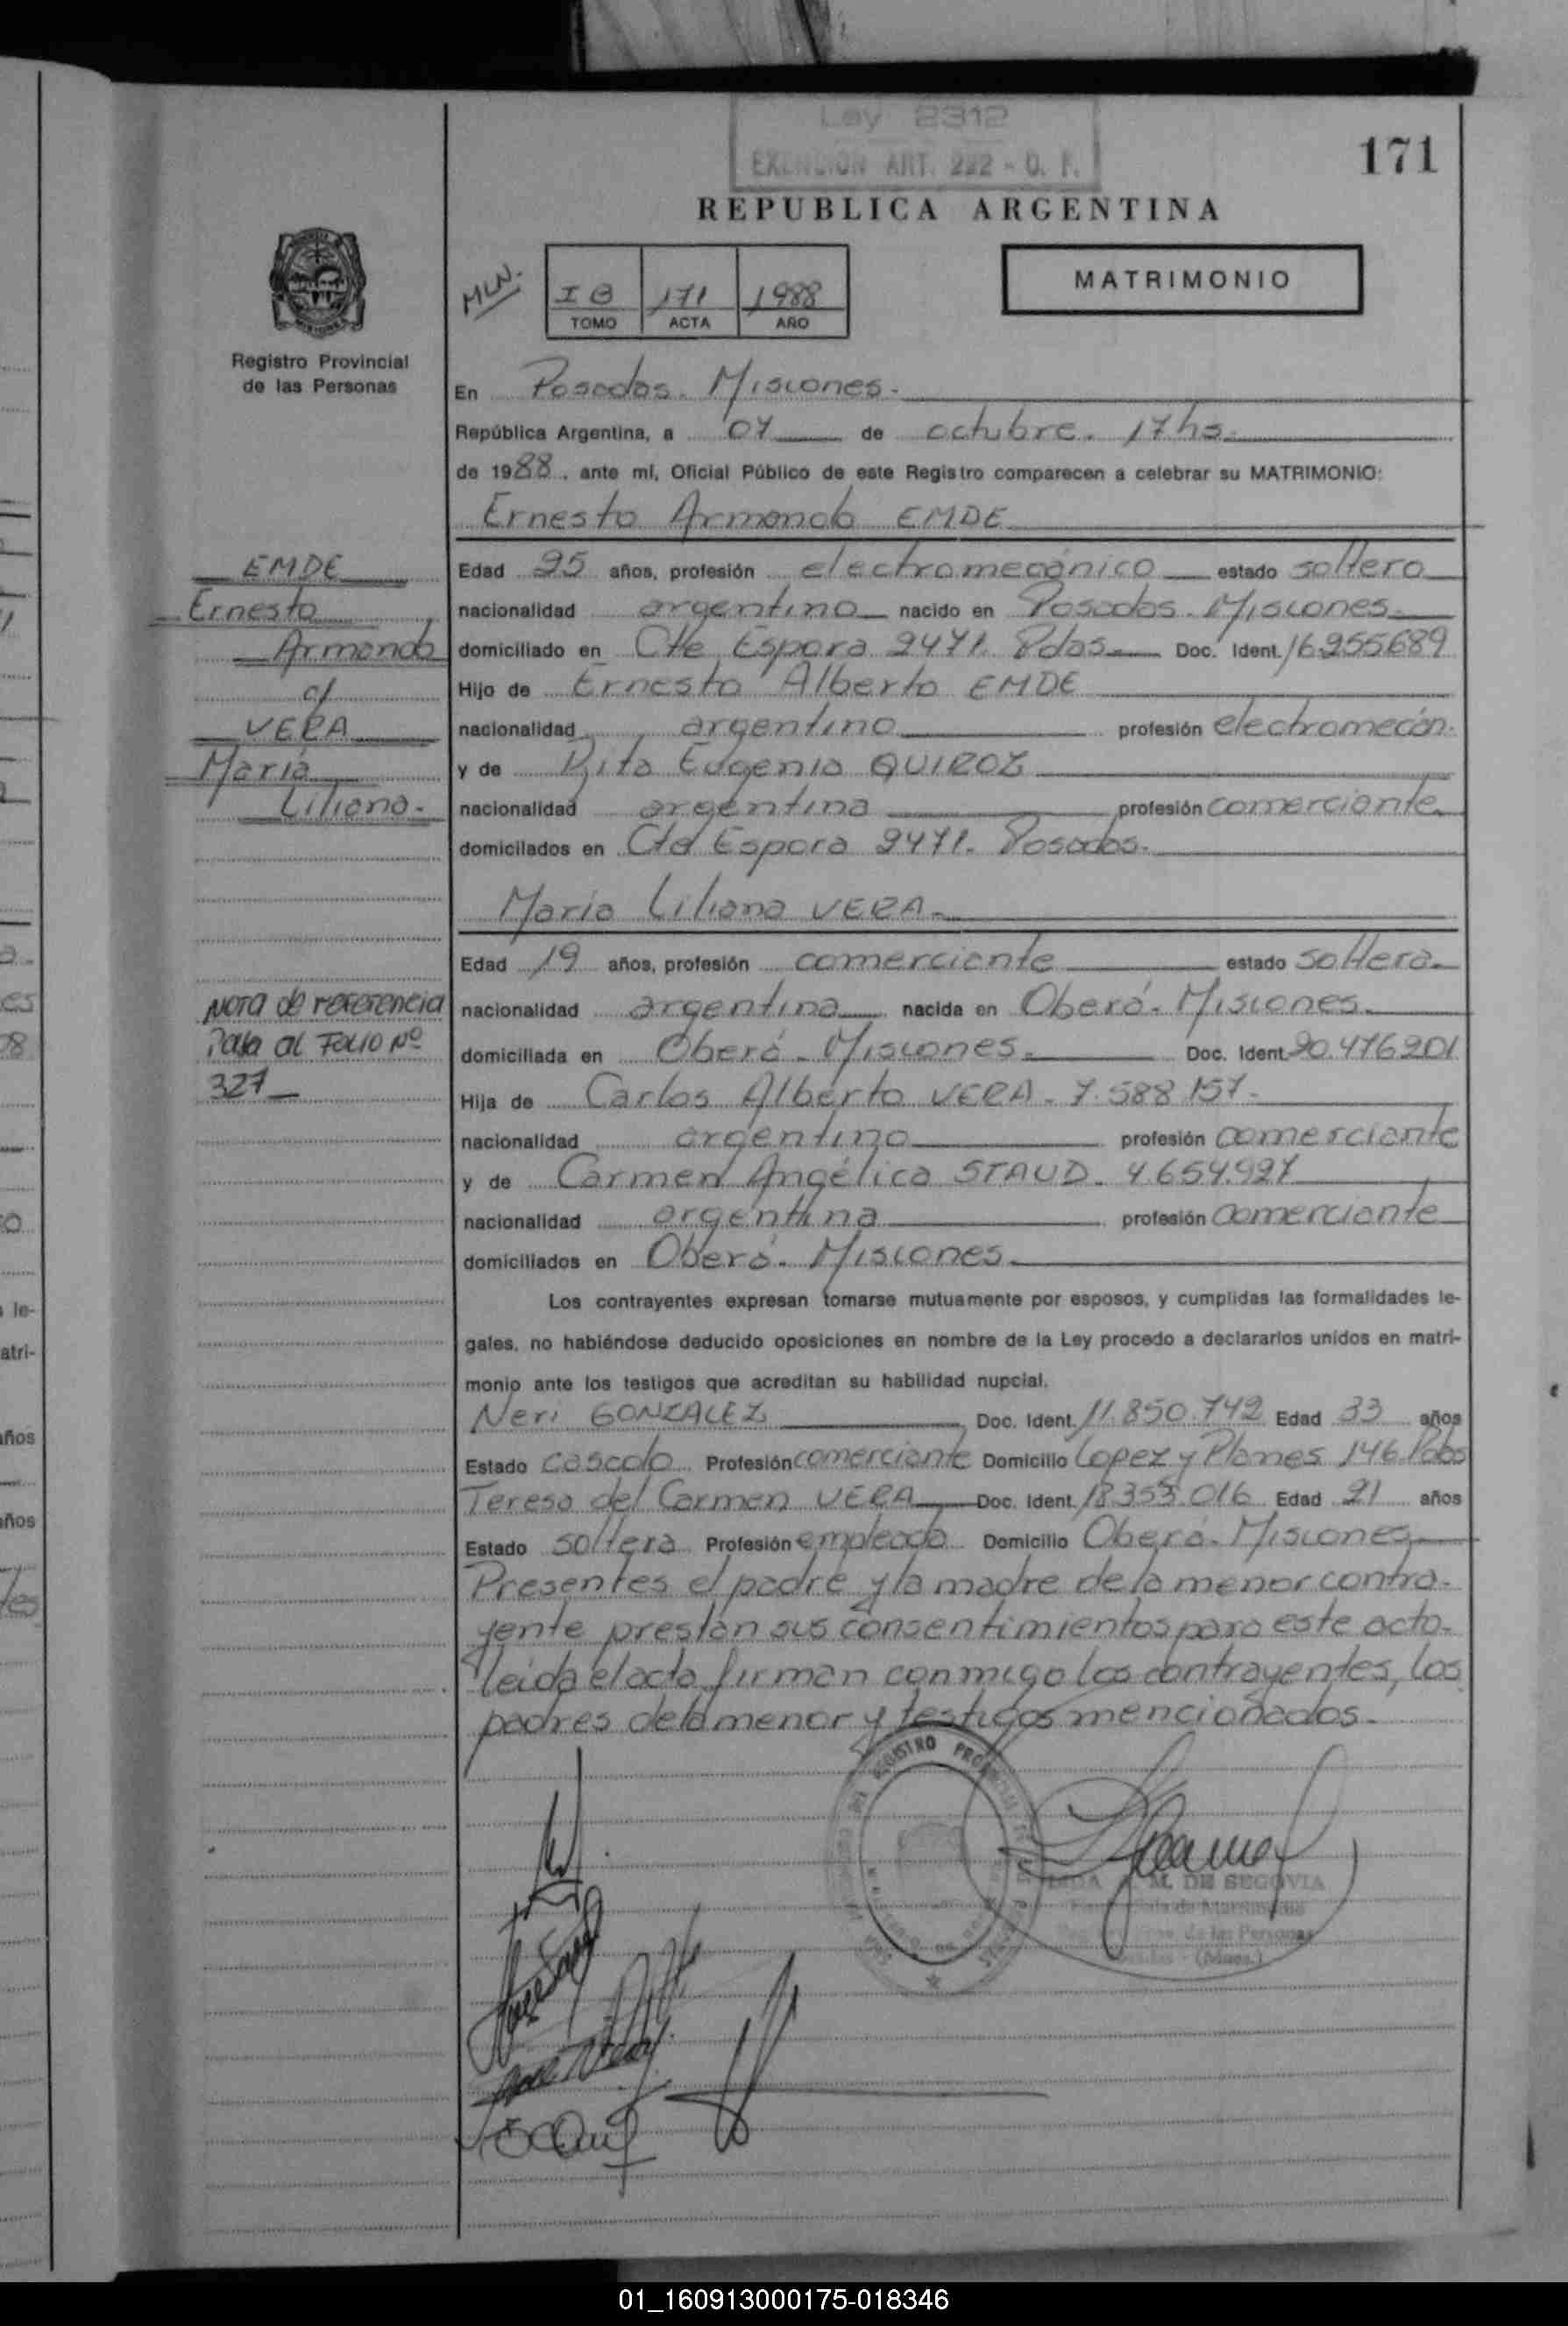 Ley 2312
EXENCION ART. 222 - C. F.
171
REPUBLICA ARGENTINA
MLN.
I B 171 1988
TOMO ACTA AÑO
MATRIMONIO
Registro Provincial
de las Personas
En Posadas. Misiones.
República Argentina, a 07 de octubre. 17hs.
de 1988, ante mí, Oficial Público de este Registro comparecen a celebrar su MATRIMONIO:
Ernesto Armando EMDE
Edad 25 años, profesión electromecánico estado soltero
nacionalidad argentino nacido en Posadas. Misiones.
domiciliado en Cte Espora 2471. Pdas. Doc. Ident. 16255689
Hijo de Ernesto Alberto EMDE
nacionalidad argentino profesión electromecán.
y de Rita Eugenia QUIROZ
nacionalidad argentina profesión comerciante
domicilados en Cte Espora 2471. Posadas.
Maria Liliana VERA.
Edad 19 años, profesión comerciante estado soltera
nacionalidad argentina nacida en Oberá. Misiones.
domiciliada en Oberá. Misiones. Doc. Ident. 20.476201
Hija de Carlos Alberto VERA. 7.588.157.
nacionalidad argentino profesión comerciante
y de Carmen Angélica STAUD. 4.654.927
nacionalidad argentina profesión comerciante
domiciliados en Oberá. Misiones.
EMDE
Ernesto
Armando
c/
VERA
Maria
Liliana.
Nota de referencia
Pasa al Folio Nº
327
Los contrayentes expresan tomarse mutuamente por esposos, y cumplidas las formalidades le-
gales, no habiéndose deducido oposiciones en nombre de la Ley procedo a declararlos unidos en matri-
monio ante los testigos que acreditan su habilidad nupcial.
Neri GONZALEZ Doc. Ident. 11.850.742 Edad 33 años
Estado casado Profesión comerciante Domicilio Lopez y Planes 146. Pdas
Teresa del Carmen VERA Doc. Ident. 18.353.016 Edad 21 años
Estado soltera Profesión empleada Domicilio Oberá. Misiones
Presentes el padre y la madre de la menor contra-
yente prestan sus consentimientos para este acto.
leida el acta firman conmigo los contrayentes, los
padres de la menor y testigos mencionados.
REGISTRO
M. DE SEGOVIA
de las Personas
(Mnes.)
le-
atri-
años
años
01_160913000175-018346